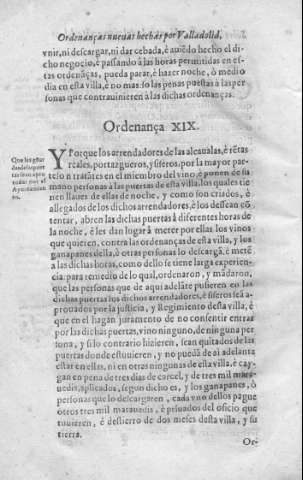 Ordenanças nueuas hechas por Valladolid,
vnir, ni descargar, ni dar cebada, è auiẽdo hecho el di-
cho negocio, è passando à las horas permitidas en es-
tas ordenãças, pueda parar, è hazer noche, ò medio
dia en esta villa, è no mas: so las penas puestas à las per-
sonas que contrauinieren à las dichas ordenanças.
Ordenança XIX.
Que los q̃ es
de las puer-
tas sean apro
uados por el
Ayuntamien
to.
Y Porque los arrendadores de las alcaualas, è rẽtas
reales, portazgueros, y siseros, por la mayor par-
te no tratãtes en el miembro del vino, è ponen de su
mano personas a las puertas de esta villa, los quales tie
nen llaues de ellas de noche, y como son criados, è
allegados de los dichos arrendadores, è los dessean cõ
tentar, abren las dichas puertas à diferentes horas de
la noche, è les dan lugar à meter por ellas los vinos
que quieren, contra las ordenanças de esta villa, y los
ganapanes della, ò otras personas lo descargã, è metẽ
à las dichas horas, como dello se tiene larga experien-
cia: para remedio de lo qual, ordenaron, y mãdaron,
que las personas que de aqui adelãte pusieren en las
dichas puertas los dichos arrendadores, è siseros seã a-
prouados por la justicia, y Regimiento desta villa, è
que en el hagan juramento de no consentir entrar
por las dichas puertas, vino ninguno, de ninguna per
sona, y si lo contrario hizieren, sean quitados de las
puertas donde estuuieren, y no puedã de ai adelante
estar en ellas, ni en otras ningunas de esta villa, è cay-
gan en pena de tres dias de carcel, y de tres mil mara-
uedis, aplicados, segun dicho es, y los ganapanes, ò
personas que lo descargaren, cada vno dellos pague
otros tres mil marauedis, è priuados del oficio que
tuuieren, è destierro de dos meses desta villa, y su
tierra.
Or-